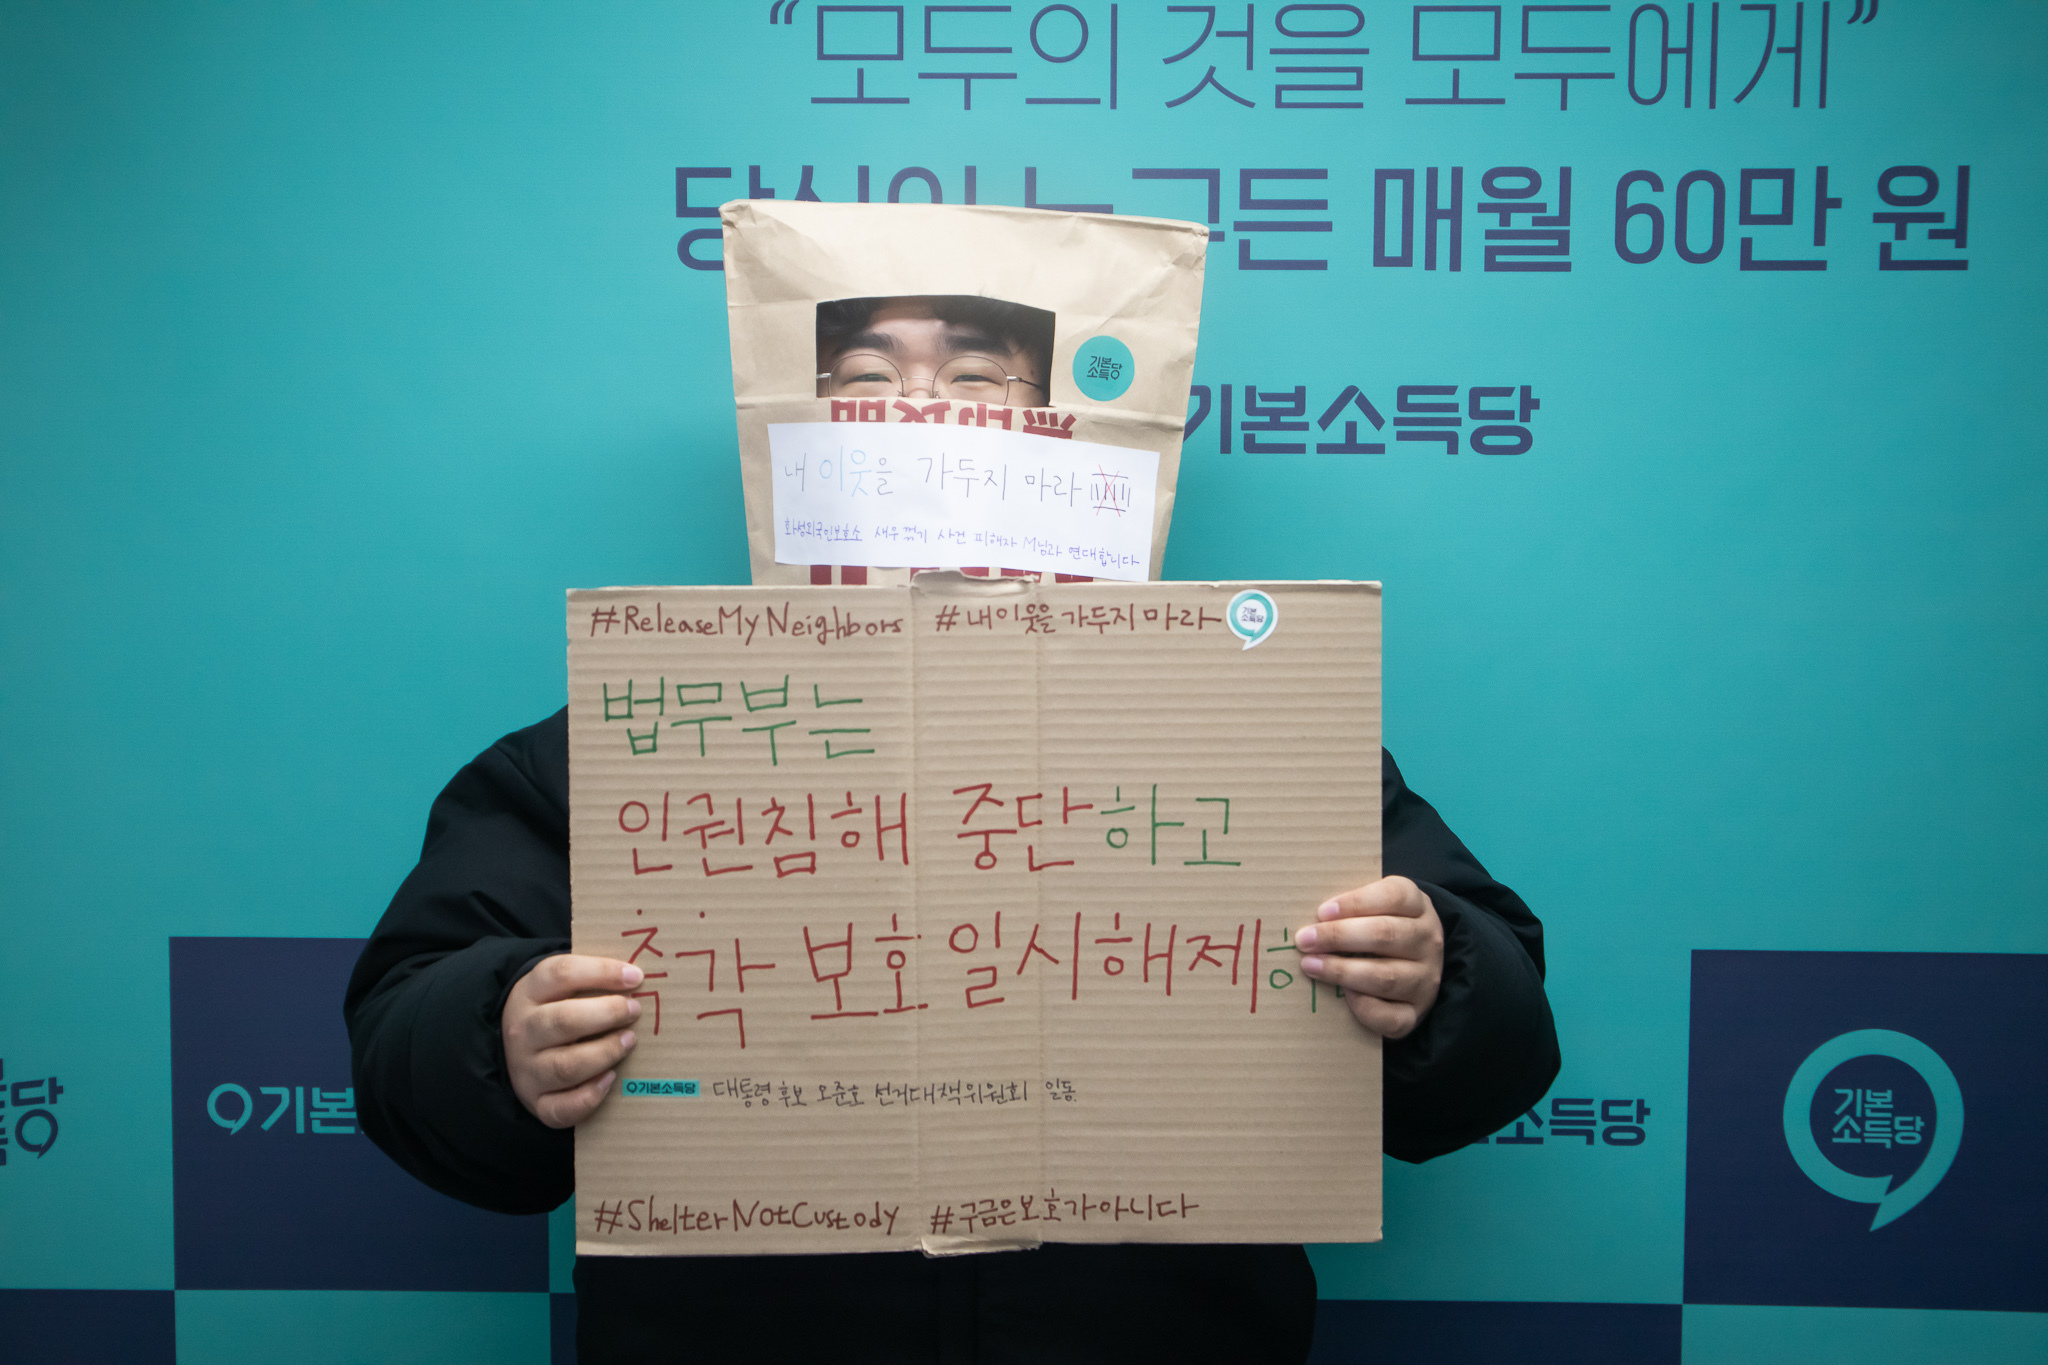 “모두의 것을 모두에게”
매월 60만 원
기본소득당
기본
소득당
내 이웃을 가두지 마라
화성외국인보호소 새우꺾기 사건 피해자 M님과 연대합니다
#ReleaseMyNeighbors #내이웃을 가두지 마라
기본
소득당
법무부는
인권침해 중단하고
즉각 보호 일시해제
기본소득당 대통령 후보 오준호 선거대책위원회 일동
#ShelterNotCustody #구금은보호가아니다
기본
소득당
기본
소득당